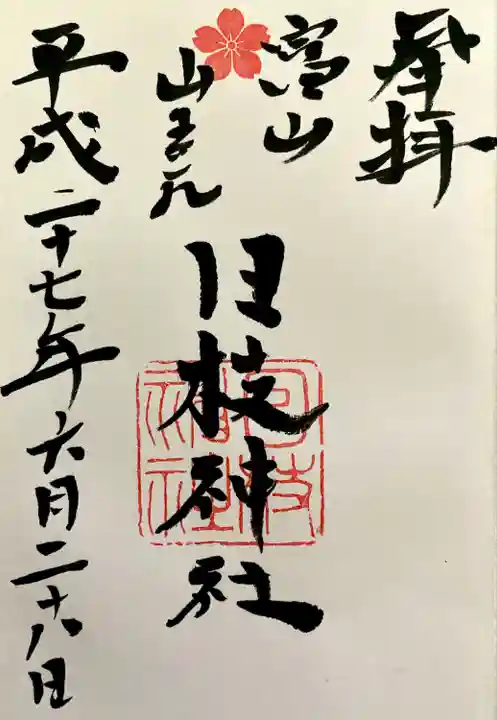 奉拝
富山
山王さん
日枝神社
日枝
神社
平成二十七年六月二十八日